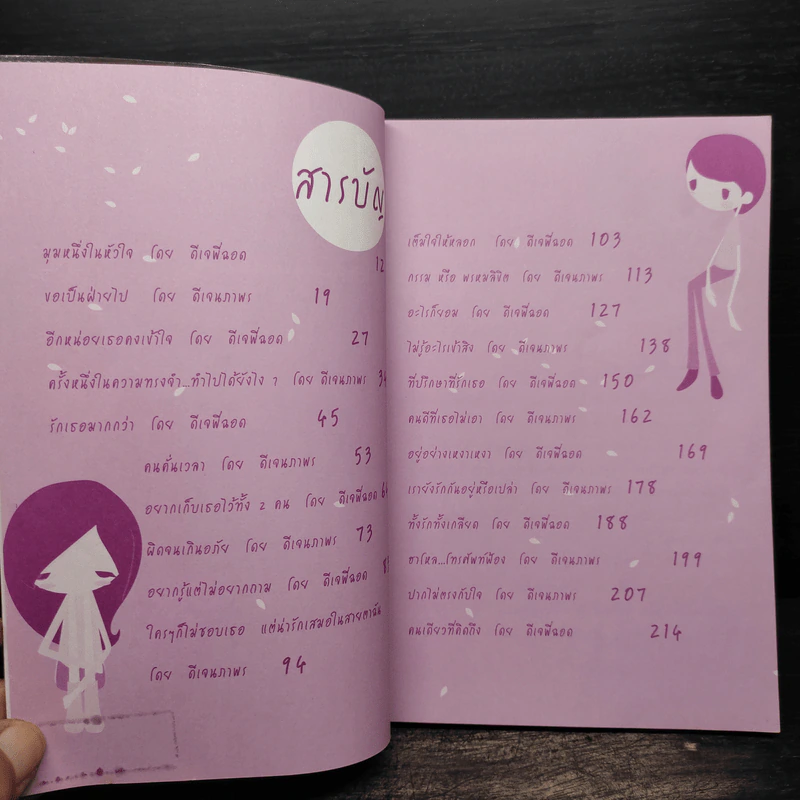 สารบัญ
มุมหนึ่งในหัวใจ โดย ดีเจพี่ฉอด 12
ขอเป็นฝ่ายไป โดย ดีเจนภาพร 19
อีกหน่อยเธอคงเข้าใจ โดย ดีเจพี่ฉอด 27
ครั้งหนึ่งในความทรงจำ...ทำไปได้ยังไง 1 โดย ดีเจนภาพร
รักเธอมากกว่า โดย ดีเจพี่ฉอด 45
คนคั่นเวลา โดย ดีเจนภาพร 53
อยากเก็บเธอไว้ทั้ง 2 คน โดย ดีเจพี่ฉอด
ผิดจนเกินอภัย โดย ดีเจนภาพร 73
อยากรู้แต่ไม่อยากถาม โดย ดีเจพี่ฉอด
ใครๆก็ไม่ชอบเธอ แต่น่ารักเสมอในสายตาฉัน
โดย ดีเจนภาพร 94
เต็มใจให้หลอก โดย ดีเจพี่ฉอด 103
กรรม หรือ พรหมลิขิต โดย ดีเจนภาพร 113
อะไรก็ยอม โดย ดีเจพี่ฉอด 127
ไม่รู้อะไรเข้าสิง โดย ดีเจนภาพร 138
ที่ปรึกษาที่รักเธอ โดย ดีเจพี่ฉอด 150
คนดีที่เธอไม่เอา โดย ดีเจนภาพร 162
อยู่อย่างเหงาเหงา โดย ดีเจพี่ฉอด 169
เรายังรักกันอยู่หรือเปล่า โดย ดีเจนภาพร 178
ทั้งรักทั้งเกลียด โดย ดีเจพี่ฉอด 188
ฮาโหล...โทรศัพท์ฟ้อง โดย ดีเจนภาพร 199
ปากไม่ตรงกับใจ โดย ดีเจนภาพร 207
คนเดียวที่คิดถึง โดย ดีเจพี่ฉอด 214